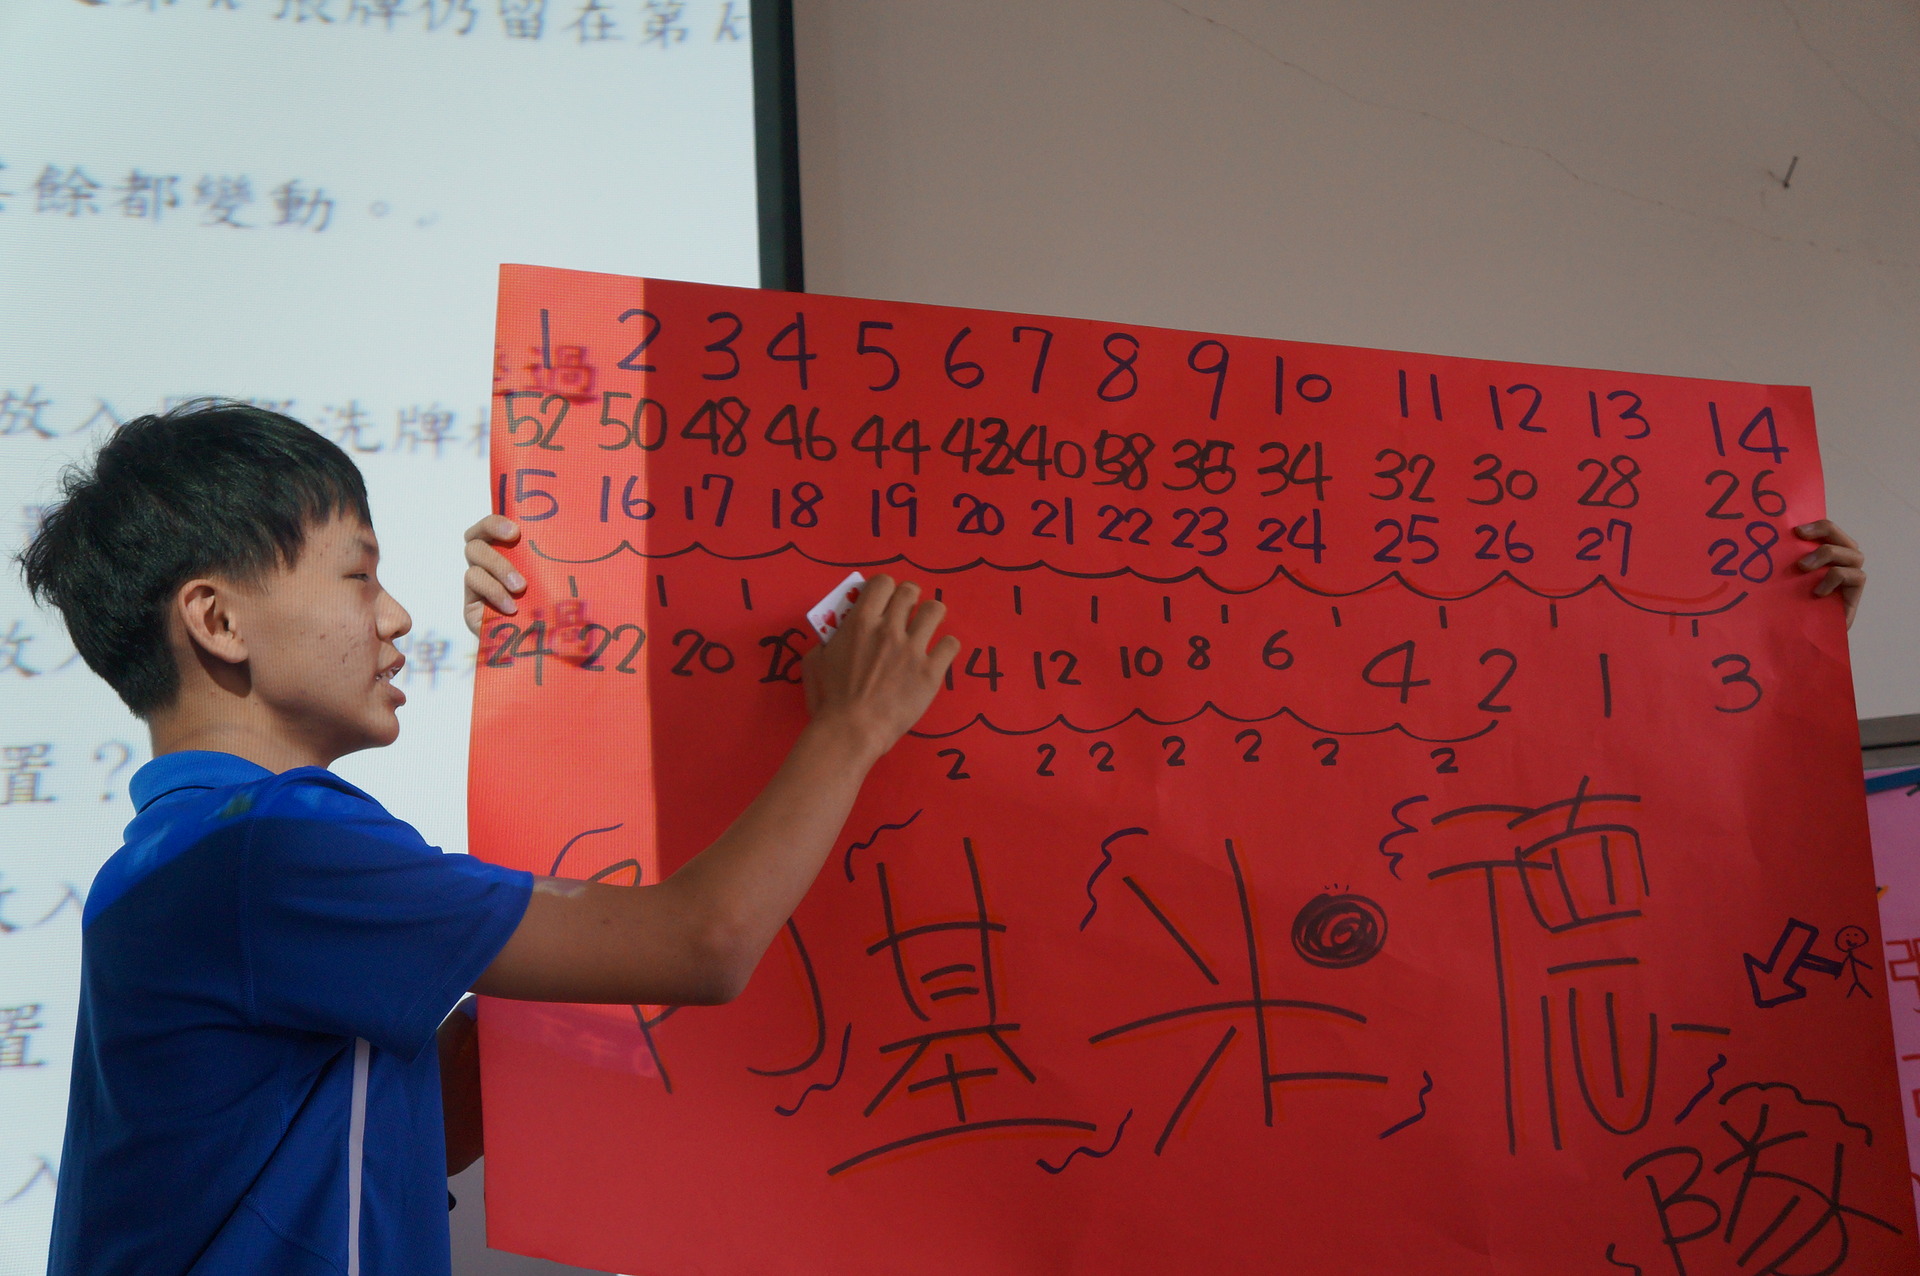 張牌仍留在第k
餘都變動。
過
放入
洗牌
置？
放入
置
入
1 2 3 4 5 6 7 8 9 10 11 12 13 14
52 50 48 46 44 42 40 38 36 34 32 30 28 26
15 16 17 18 19 20 21 22 23 24 25 26 27 28
1 1 1 1 1 1 1 1 1 1 1 1
24 22 20 18 14 12 10 8 6 4 2 1 3
2 2 2 2 2 2 2
阿基米德
隊